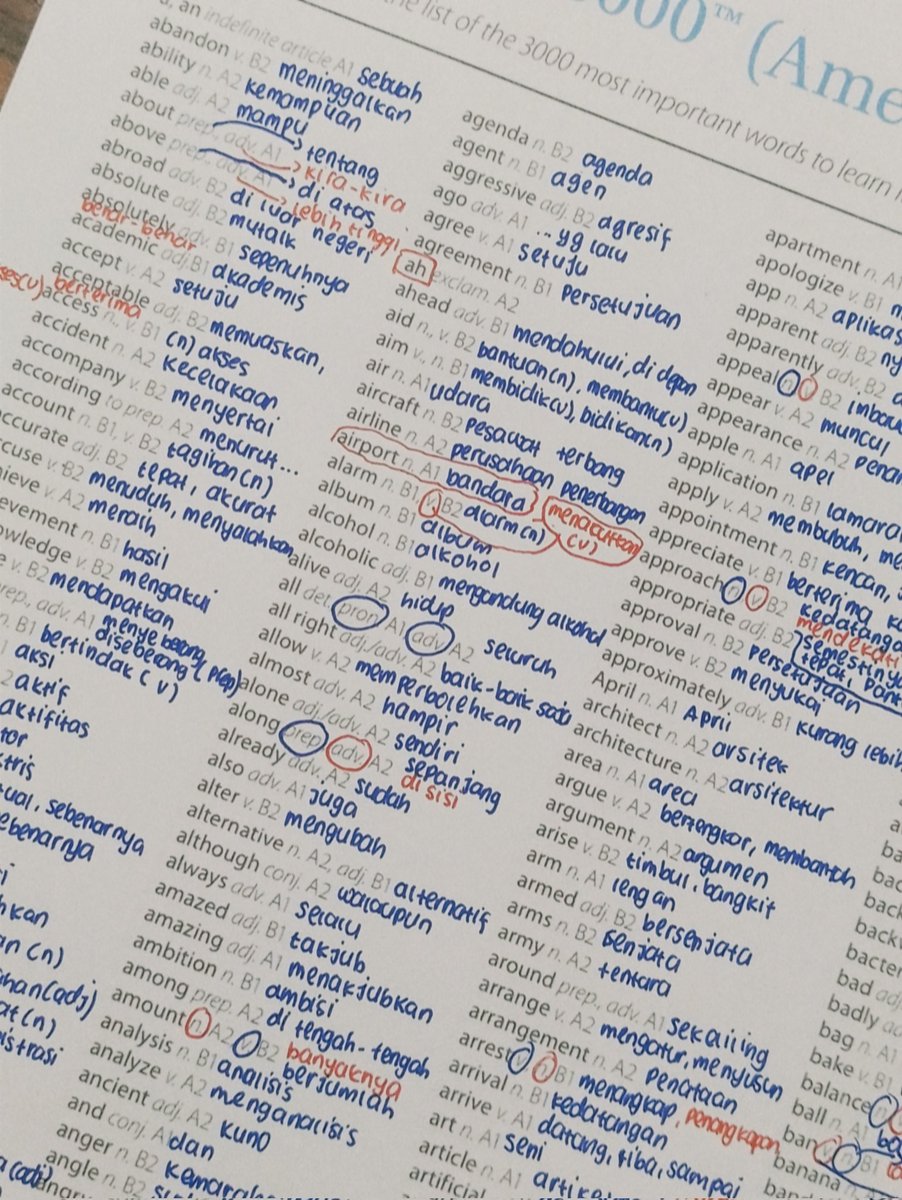 3000™ (Ame
the list of the 3000 most important words to learn
a, an indefinite article A1 sebuah
abandon v. B2 meninggalkan
ability n. A2 kemampuan
able adj. A2 mampu
about prep., adv. A1 tentang
kira-kira
above prep., adv. A1 di atas
lebih tinggi
abroad adv. B2 di luar negeri
absolute adj. B2 mutlak
absolutely adv. B1 sepenuhnya
benar-benar
academic adj. B1 akademis
accept v. A2 setuju
acceptable adj. B2 memuaskan,
berterima
access n., v. B1 (n) akses
ses(v)
accident n. A2 kecelakaan
accompany v. B2 menyertai
according to prep. A2 menurut...
account n. B1, v. B2 tagihan (n)
accurate adj. B2 tepat, akurat
accuse v. B2 menuduh, menyalahkan
ieve v. A2 meraih
evement n. B1 hasil
owledge v. B2 mengakui
v. B2 mendapatkan
prep., adv. A1 menyebrang (prep)
diseberang
n. B1 bertindak (v)
1 aksi
2 aktif
aktifitas
tor
ktris
tual, sebenarnya
ebenarnya
hkan
an (n)
ihan (adj)
at (n)
istrasi
agenda n. B2 agenda
agent n. B1 agen
aggressive adj. B2 agresif
ago adv. A1 ...yg lalu
agree v. A1 setuju
agreement n. B1 persetujuan
ah exclam. A2
ahead adv. B1 mendahului, di depan
aid n., v. B2 bantuan (n), membantu (v)
aim v., n. B1 membidik (v), bidikan (n)
air n. A1 udara
aircraft n. B2 pesawat terbang
airline n. A2 perusahaan penerbangan
airport n. A1 bandara
alarm n. B1, v. B2 alarm (n)
menakutkan (v)
album n. B1 album
alcohol n. B1 alkohol
alcoholic adj. B1 mengandung alkohol
alive adj. A2 hidup
all det., pron. A1, adv. A2 seluruh
all right adj./adv. A2 baik-baik saja
allow v. A2 memperbolehkan
almost adv. A2 hampir
alone adj./adv. A2 sendiri
along prep., adv. A2 sepanjang
di sisi
already adv. A2 sudah
also adv. A1 juga
alter v. B2 mengubah
alternative n. A2, adj. B1 alternatif
although conj. A2 walaupun
always adv. A1 selalu
amazed adj. B1 takjub
amazing adj. A1 menakjubkan
ambition n. B1 ambisi
among prep. A2 di tengah-tengah
amount n. A2, v. B2 banyaknya
berjumlah
analysis n. B1 analisis
analyze v. A2 menganalisis
ancient adj. A2 kuno
and conj. A1 dan
anger n. B2
angle n. B2
apartment n. A1
apologize v. B1
app n. A2 aplikas
apparent adj. B2 ny
apparently adv. B2
appeal n., v. B2 imbau
appear v. A2 muncul
appearance n. A2 pena
apple n. A1 apel
application n. B1 lamara
apply v. A2 membubuh, me
appointment n. B1 kencan,
appreciate v. B1 berterima ka
approach n., v. B2 kedatanga
mendekati
appropriate adj. B2 semestinya
(tepat, pant
approval n. B2 persetujuan
approve v. B2 menyukai
approximately adv. B1 kurang lebih
April n. A1 April
architect n. A2 arsitek
architecture n. A2 arsitektur
area n. A1 area
argue v. A2 bertengkar, membantah
argument n. A2 argumen
arise v. B2 timbul, bangkit
arm n. A1 lengan
armed adj. B2 bersenjata
arms n. B2 senjata
army n. A2 tentara
around prep., adv. A1 sekaliling
arrange v. A2 mengatur, menyusun
arrangement n. A2 penataan
arrest v., n. B1 menangkap, penangkapan
arrival n. B1 kedatangan
arrive v. A1 datang, tiba, sampai
art n. A1 seni
article n. A1
artificial
bac
back
backw
bacter
bad adj
badly ad
bag n. A1
bake v. B1
balance n.
ball n. A1
ban v., n. B1
banana